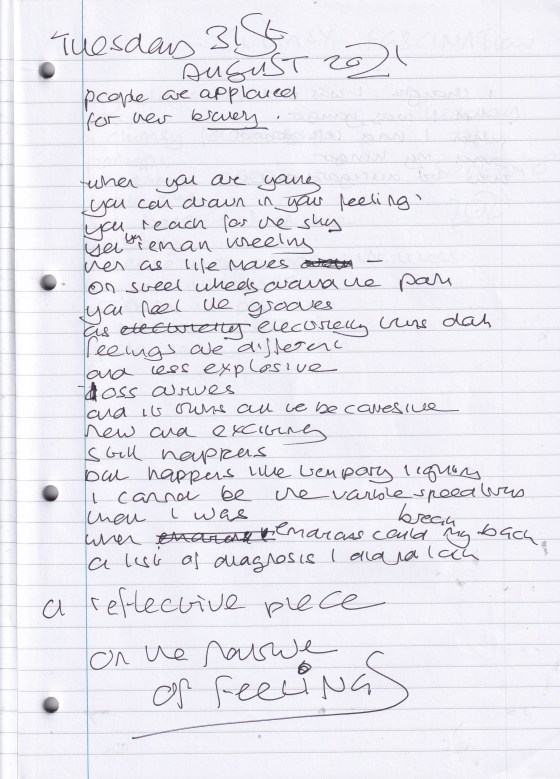 Tuesday 31st
August 2021
people are applaued
for ther bravery.
when you are young
you can drown in your feeling
you reach for the sky
yet reman kneeling
then as life moves
on steel wheels around the park
you feel the grooves
as electricity electricity turns dark
feelings are different
and less explosive
loss arrives
and it turns out to be corrosive
new and exciting
still happens
but happens like tempary lighting
I cannot be the varible speed
then I was
when emotions could break my back
a list of diagnosis I did not lack
a reflective piece
on the nature
of FEELINGS